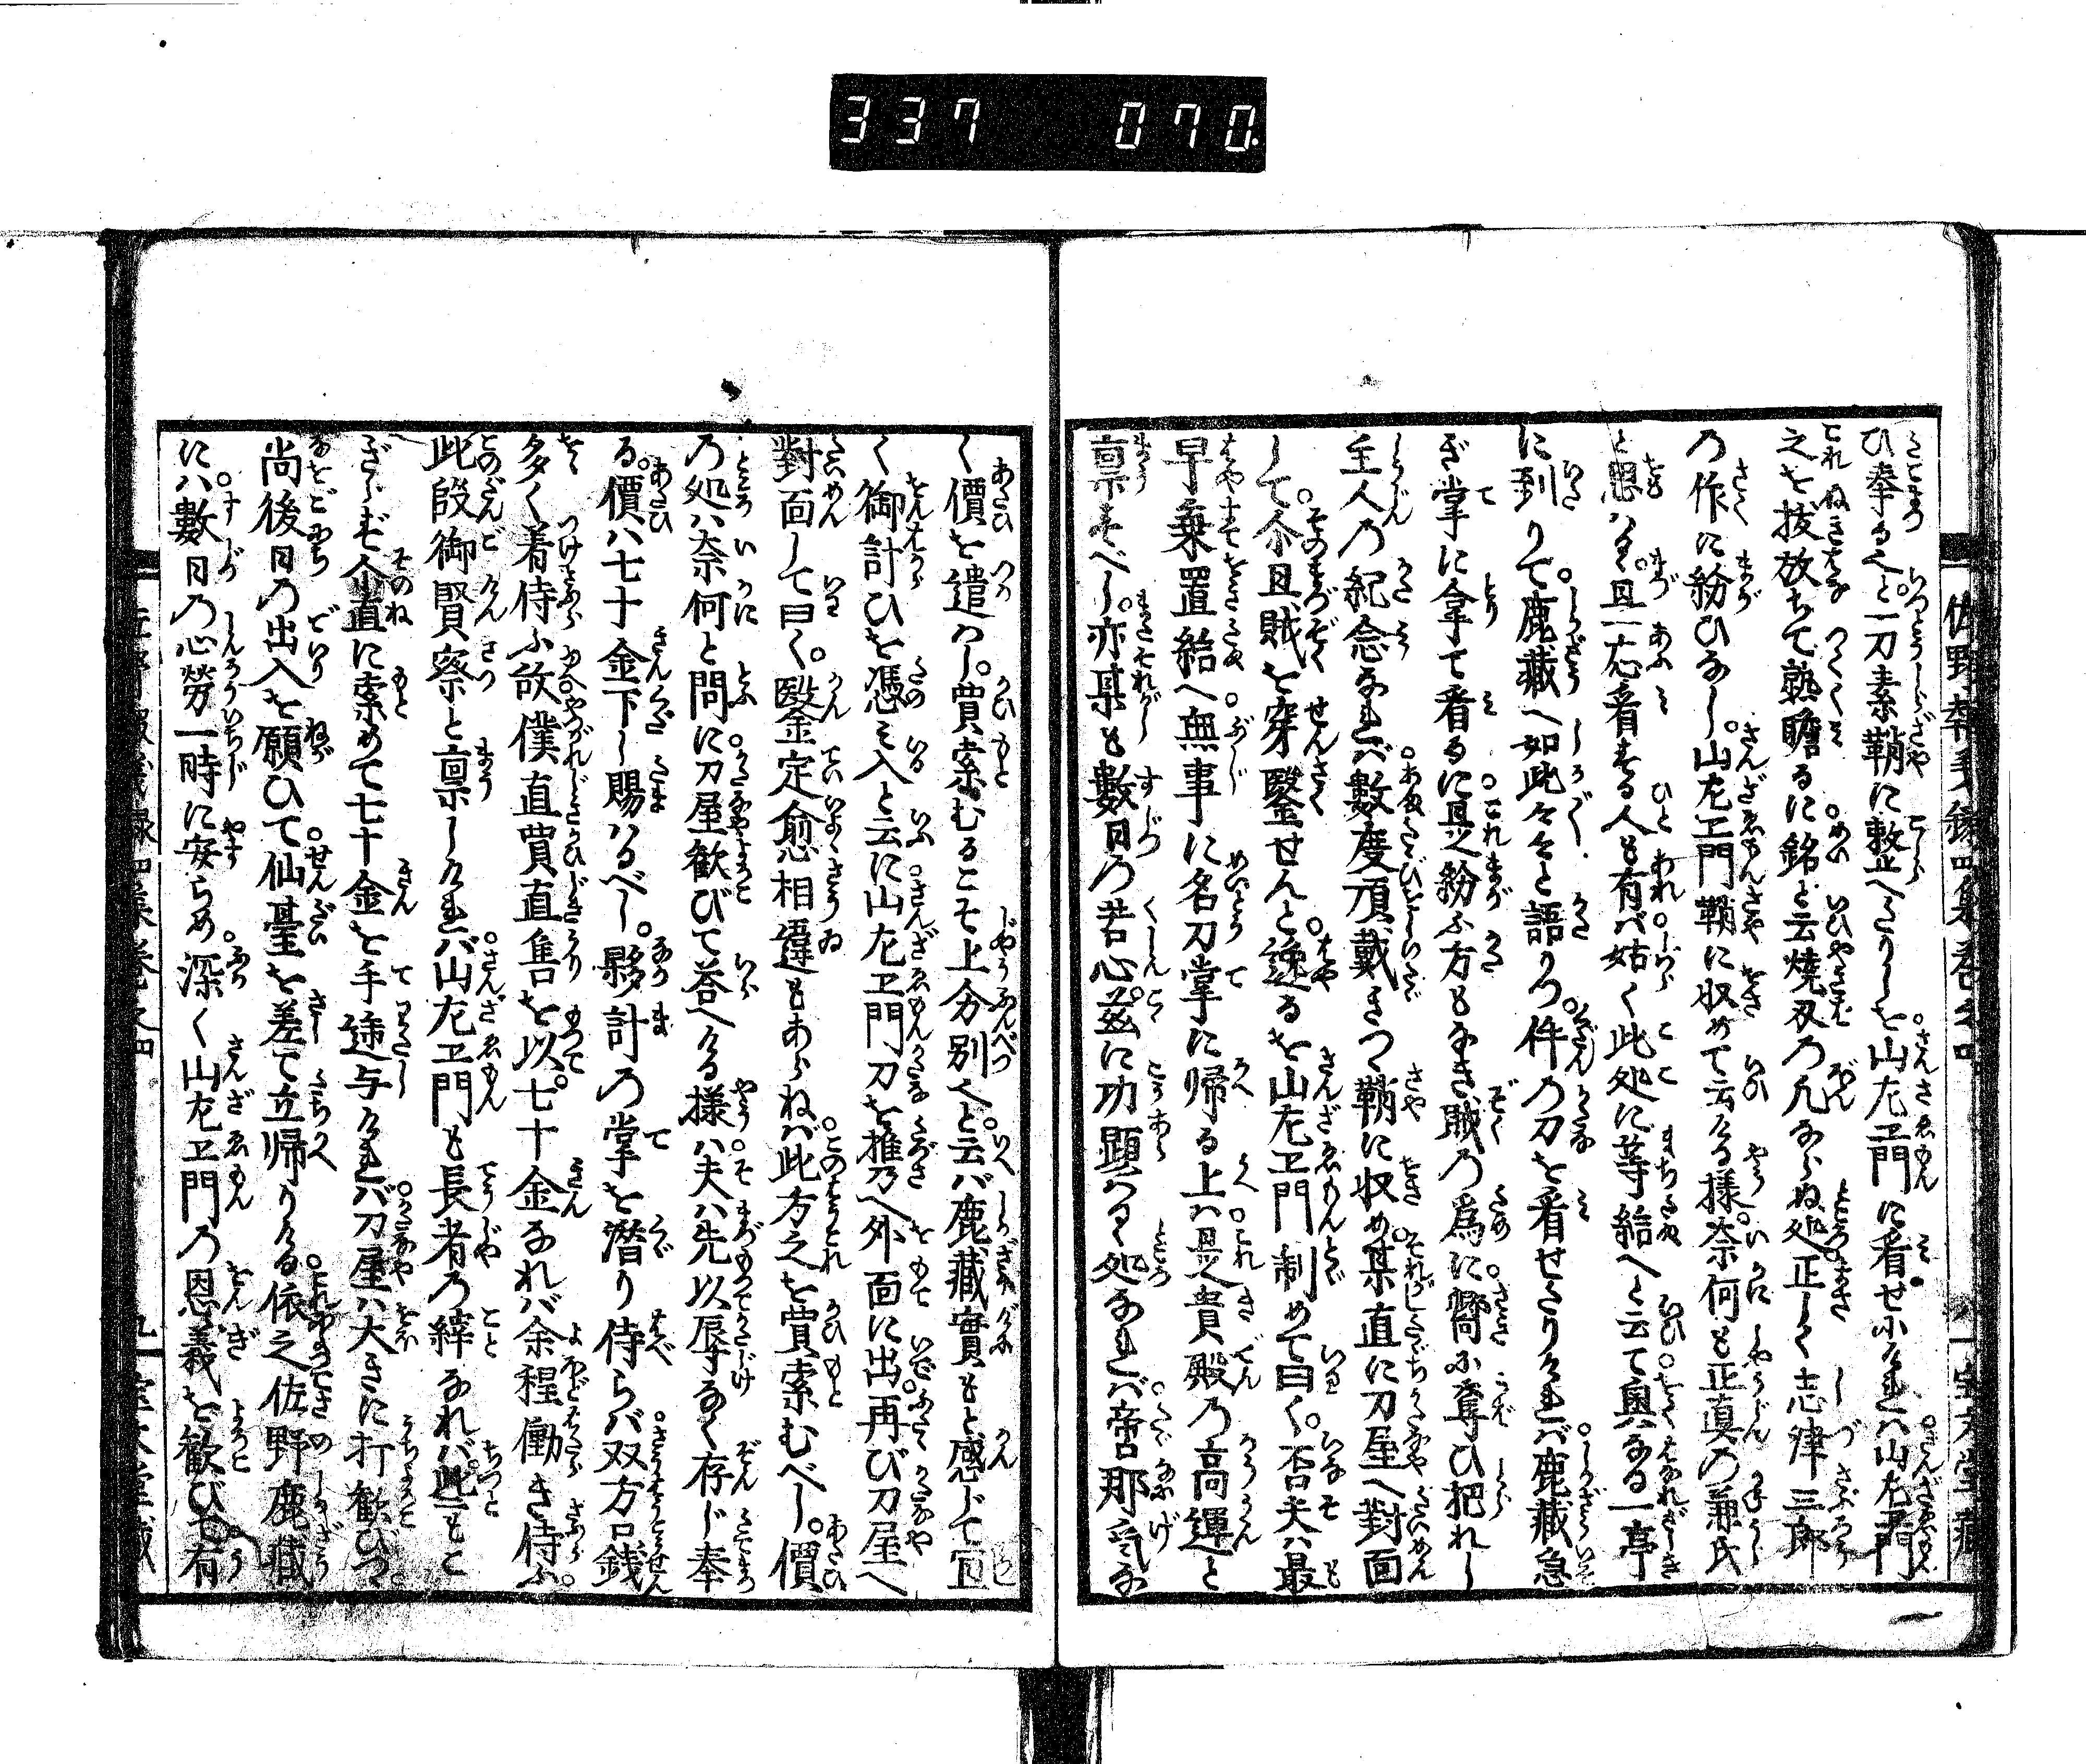 337 070
ひ奉るべしと。一刀素鞘に整へたりしを。山左エ門に看せ小ければ。山左エ門
之を抜放ちて熟瞻るに。銘と云焼刄の凡ならぬ処。正しく志津三郎
の作に紛ひなし。山左エ門鞘に収めて云ける様。奈何も正真の兼氏
と思はる。且一応看する人も有ば。姑く此処に等給へと云て。奥なる一亭
に到りて。鹿蔵へ如此々々と語りつ。件の刀を看せたりければ。鹿蔵急
ぎ掌に拿て看るに。是紛ふ方もなき。賊の為に齎小奪ひ把れし
主人の紀念なれば。数度頂戴きつ。鞘に収め。某直に刀屋へ対面
して。其且賊を穿鑿せんと。逸るを山左エ門制めて曰く。否夫は最
早棄置給へ。無事に名刀掌に帰る上は。是貴殿の高運と
禀すべし。亦某も数日の苦心。茲に功顕はるゝ処なれば。啻那気な
く価を遣はし。買索むるこそ上分別と。云ば鹿蔵実もと感じて。宜
く御計ひを憑み入と云に。山左エ門刀を推乃へ外面に出。再び刀屋へ
対面して曰く。鑒定愈相違もあらねば。此方之を買索むべし。価
の処は奈何と問に。刀屋歓びて答へける様は。夫は先以辱なく存じ奉
る。価は七十金下し賜はるべし。夥計の掌を潜り侍らば。双方口銭
多く着侍ふ故。僕直買直售を以。七十金なれば余程働き侍ふ。
此段御賢察と禀しければ。山左エ門も長者の緯なれば。些もこ
ざらず。企直に索めて七十金を手逓与ければ。刀屋は大きに打歓びつ。
尚後日の出入を願ひて。仙台を差て立帰りける。依之佐野鹿蔵
には。数日の心労一時に安らめ。深く山左エ門の恩義を歓びて有
佐野報義録四集巻之四
九
宝文堂蔵